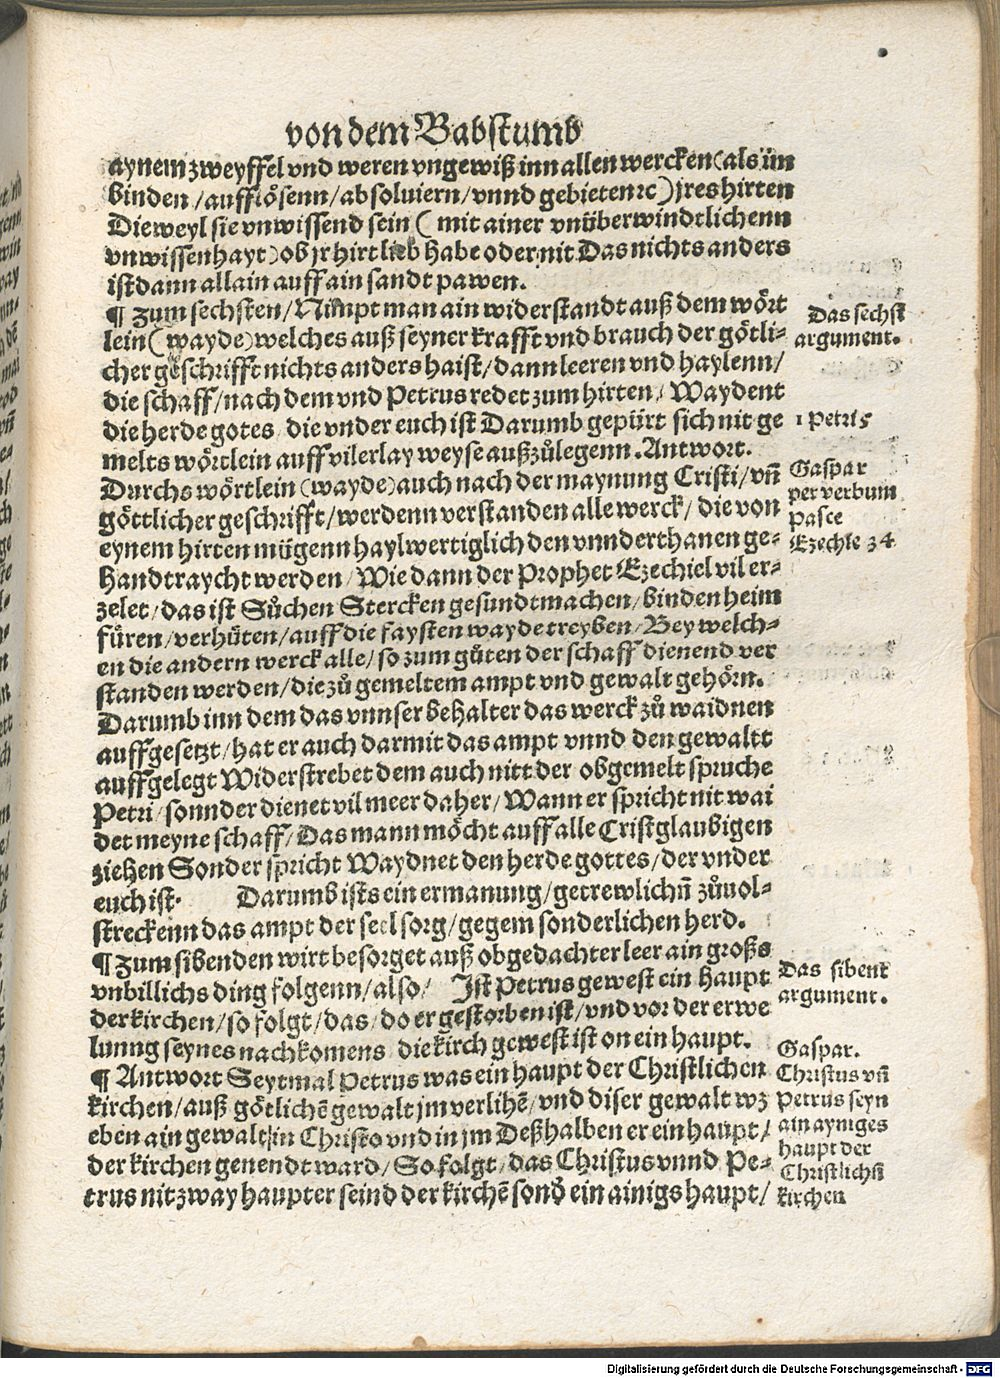 von dem Babstumb
aynem zweyffel vnd weren vngewiß inn allen wercken (als im
binden / aufflösenn / absoluiern / vnnd gebieten ꝛc) jres hirten
Die weyl sie vnwissend sein ( mit ainer vnüberwindtlichenn
vnwissenhayt) ob jr hirt lieb habe oder nit Das nichts anders
ist dann allain auff ain sandt pawen.
¶ Zum sechsten / Nimpt man ain widerstandt auß dem wört
lein ( wayde) welches auß seyner krafft vnd brauch der götli-
cher geschrifft nichts anders haist / dann leeren vnd haylenn /
die schaff / nach dem vnd Petrus redet zum hirten / Waydent
die herde gotes / die vnder euch ist Darumb gepürt sich nit ge
melts wörtlein auff vilerlay weyse außzůlegenn. Antwort.
Durchs wörtlein (wayde) auch nach der maynung Cristi / vñ
göttlicher geschrifft / werdenn verstanden alle werck / die von
eynem hirten mügenn haylwertiglich den vnnderthanen ge-
handtraycht werden / Wie dann der Prophet Ezechiel vil er-
zelet / das ist Sůchen Stercken gesundt machen / binden heim
füren / verhüten / auff die faysten wayde treyben / Bey welch-
en die andern werck alle / so zum gůten der schaff dienend ver
standen werden / die zů gemeltem ampt vnd gewalt gehörn.
Darumb inn dem das vnnser behalter das werck zů waidnen
auffgesetzt / hat er auch darmit das ampt vnnd den gewaltt
auffgelegt Widerstrebet dem auch nitt der obgemelt spruche
Petri / sonnder dienet vil meer daher / Wann er spricht nit wai
det meyne schaff / Das mann möcht auff alle Cristglaubigen
ziehen Sonder spricht Waydnet den herde gottes / der vnder
euch ist. Darumb ists ein ermanung / getrewlichñ zůuol-
streckenn das ampt der seel sorg / gegem sonderlichen herd.
¶ Zum sibenden wirt besorget auß obgedachter leer ain großs
vnbillichs ding folgenn / also / Ist Petrus gewest ein haupt
der kirchen / so folgt / das / do er gestorben ist / vnd vor der erwe
lunng seynes nachkomens / die kirch gewest ist on ein haupt.
¶ Antwort Seytmal Petrus was ein haupt der Christlichen
kirchen / auß götlichē gewalt jm verlihē / vnd diser gewalt wz
eben ain gewalt / in Christo vnd in jm Deßhalben er ein haupt /
der kirchen genendt ward / So folgt / das Christus vnnd Pe-
trus nit zway haupter seind der kirchē sonđ ein ainigs haupt /
Das sechst
argument.
1 Petri 5
Gaspar
per verbum
Pasce
Ezechie 34
Das sibent
argument.
Gaspar.
Christus vñ
Petrus seyn
ain ayniges
haupt der
Christlichñ
kirchen
Digitalisierung gefördert durch die Deutsche Forschungsgemeinschaft - DFG